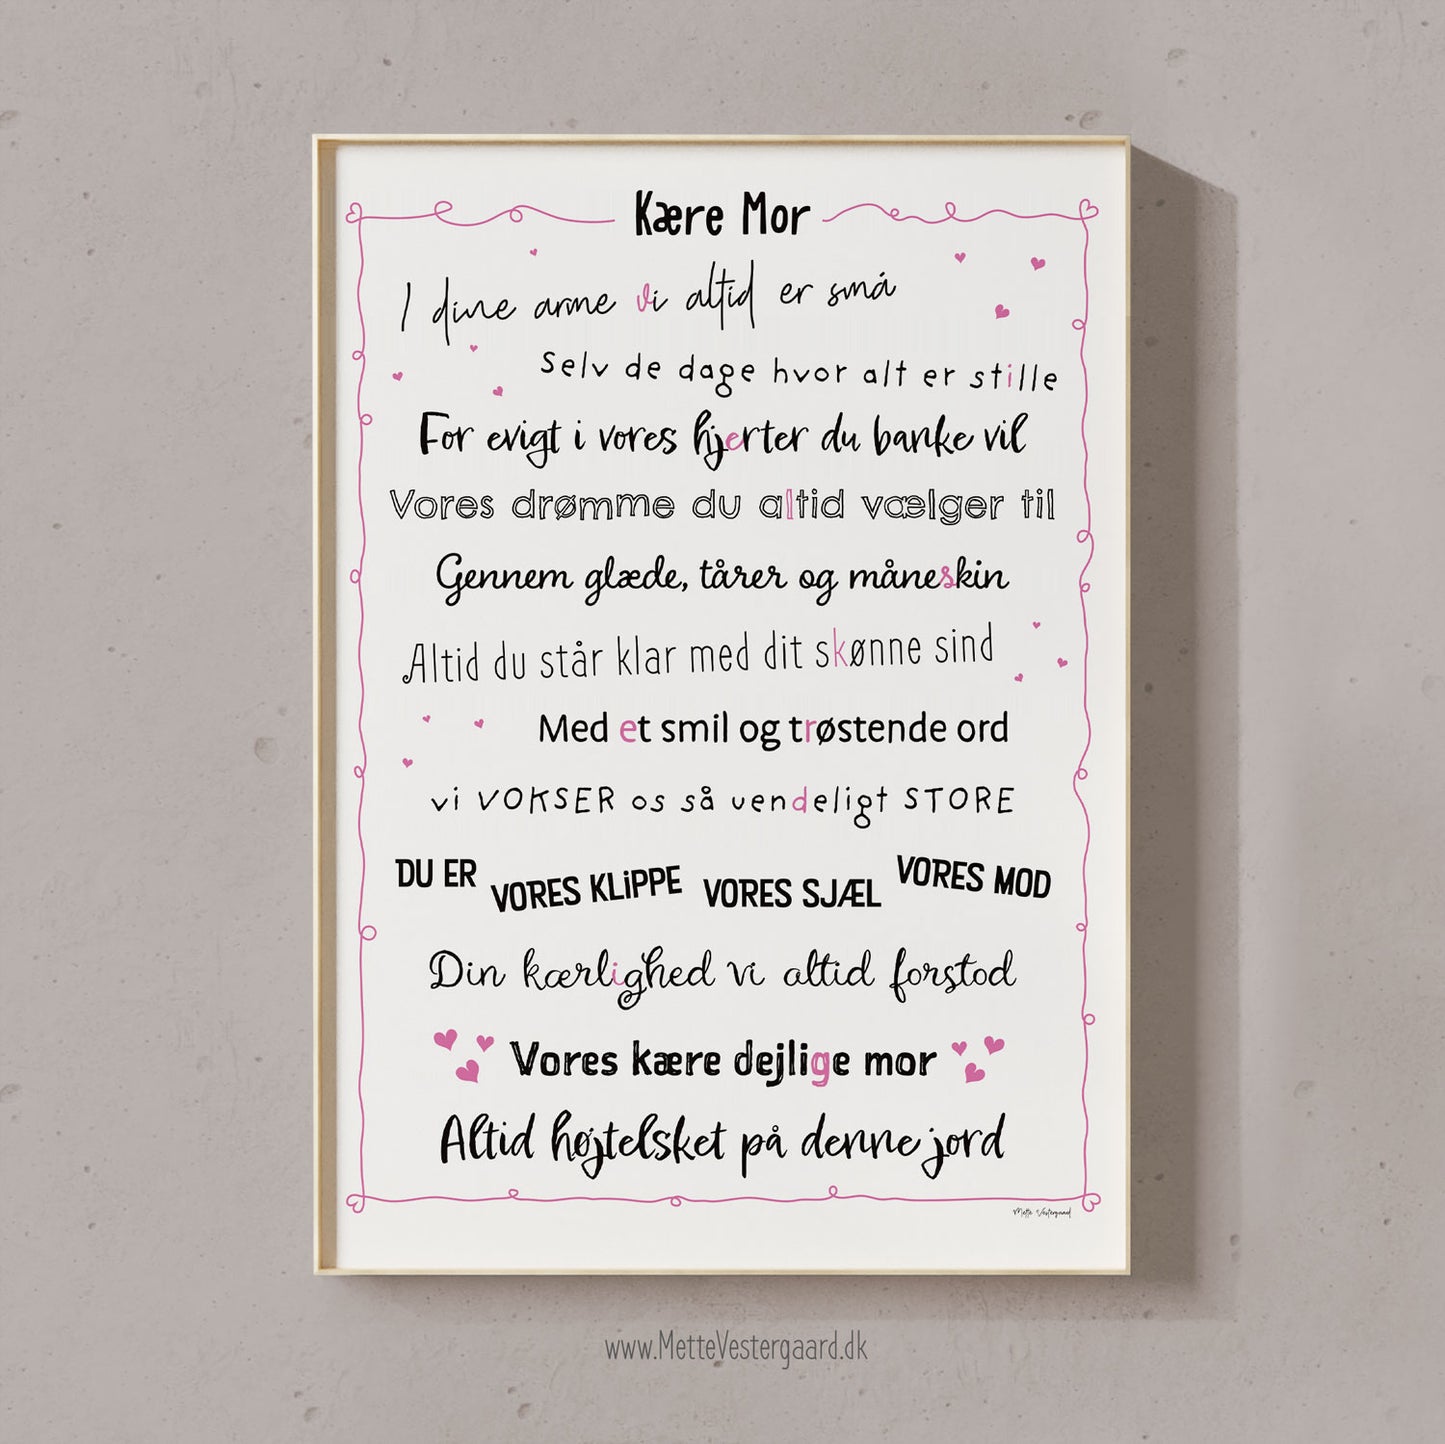 Kære Mor
I dine arme vi altid er små
Selv de dage hvor alt er stille
For evigt i vores hjerter du banke vil
Vores drømme du altid vælger til
Gennem glæde, tårer og måneskin
Altid du står klar med dit skønne sind
Med et smil og trøstende ord
vi VOKSER os så uendeligt STORE
DU ER VORES KLiPPE VORES SJÆL VORES MOD
Din kærlighed vi altid forstod
Vores kære dejlige mor
Altid højtelsket på denne jord
Mette Vestergaard
www.MetteVestergaard.dk